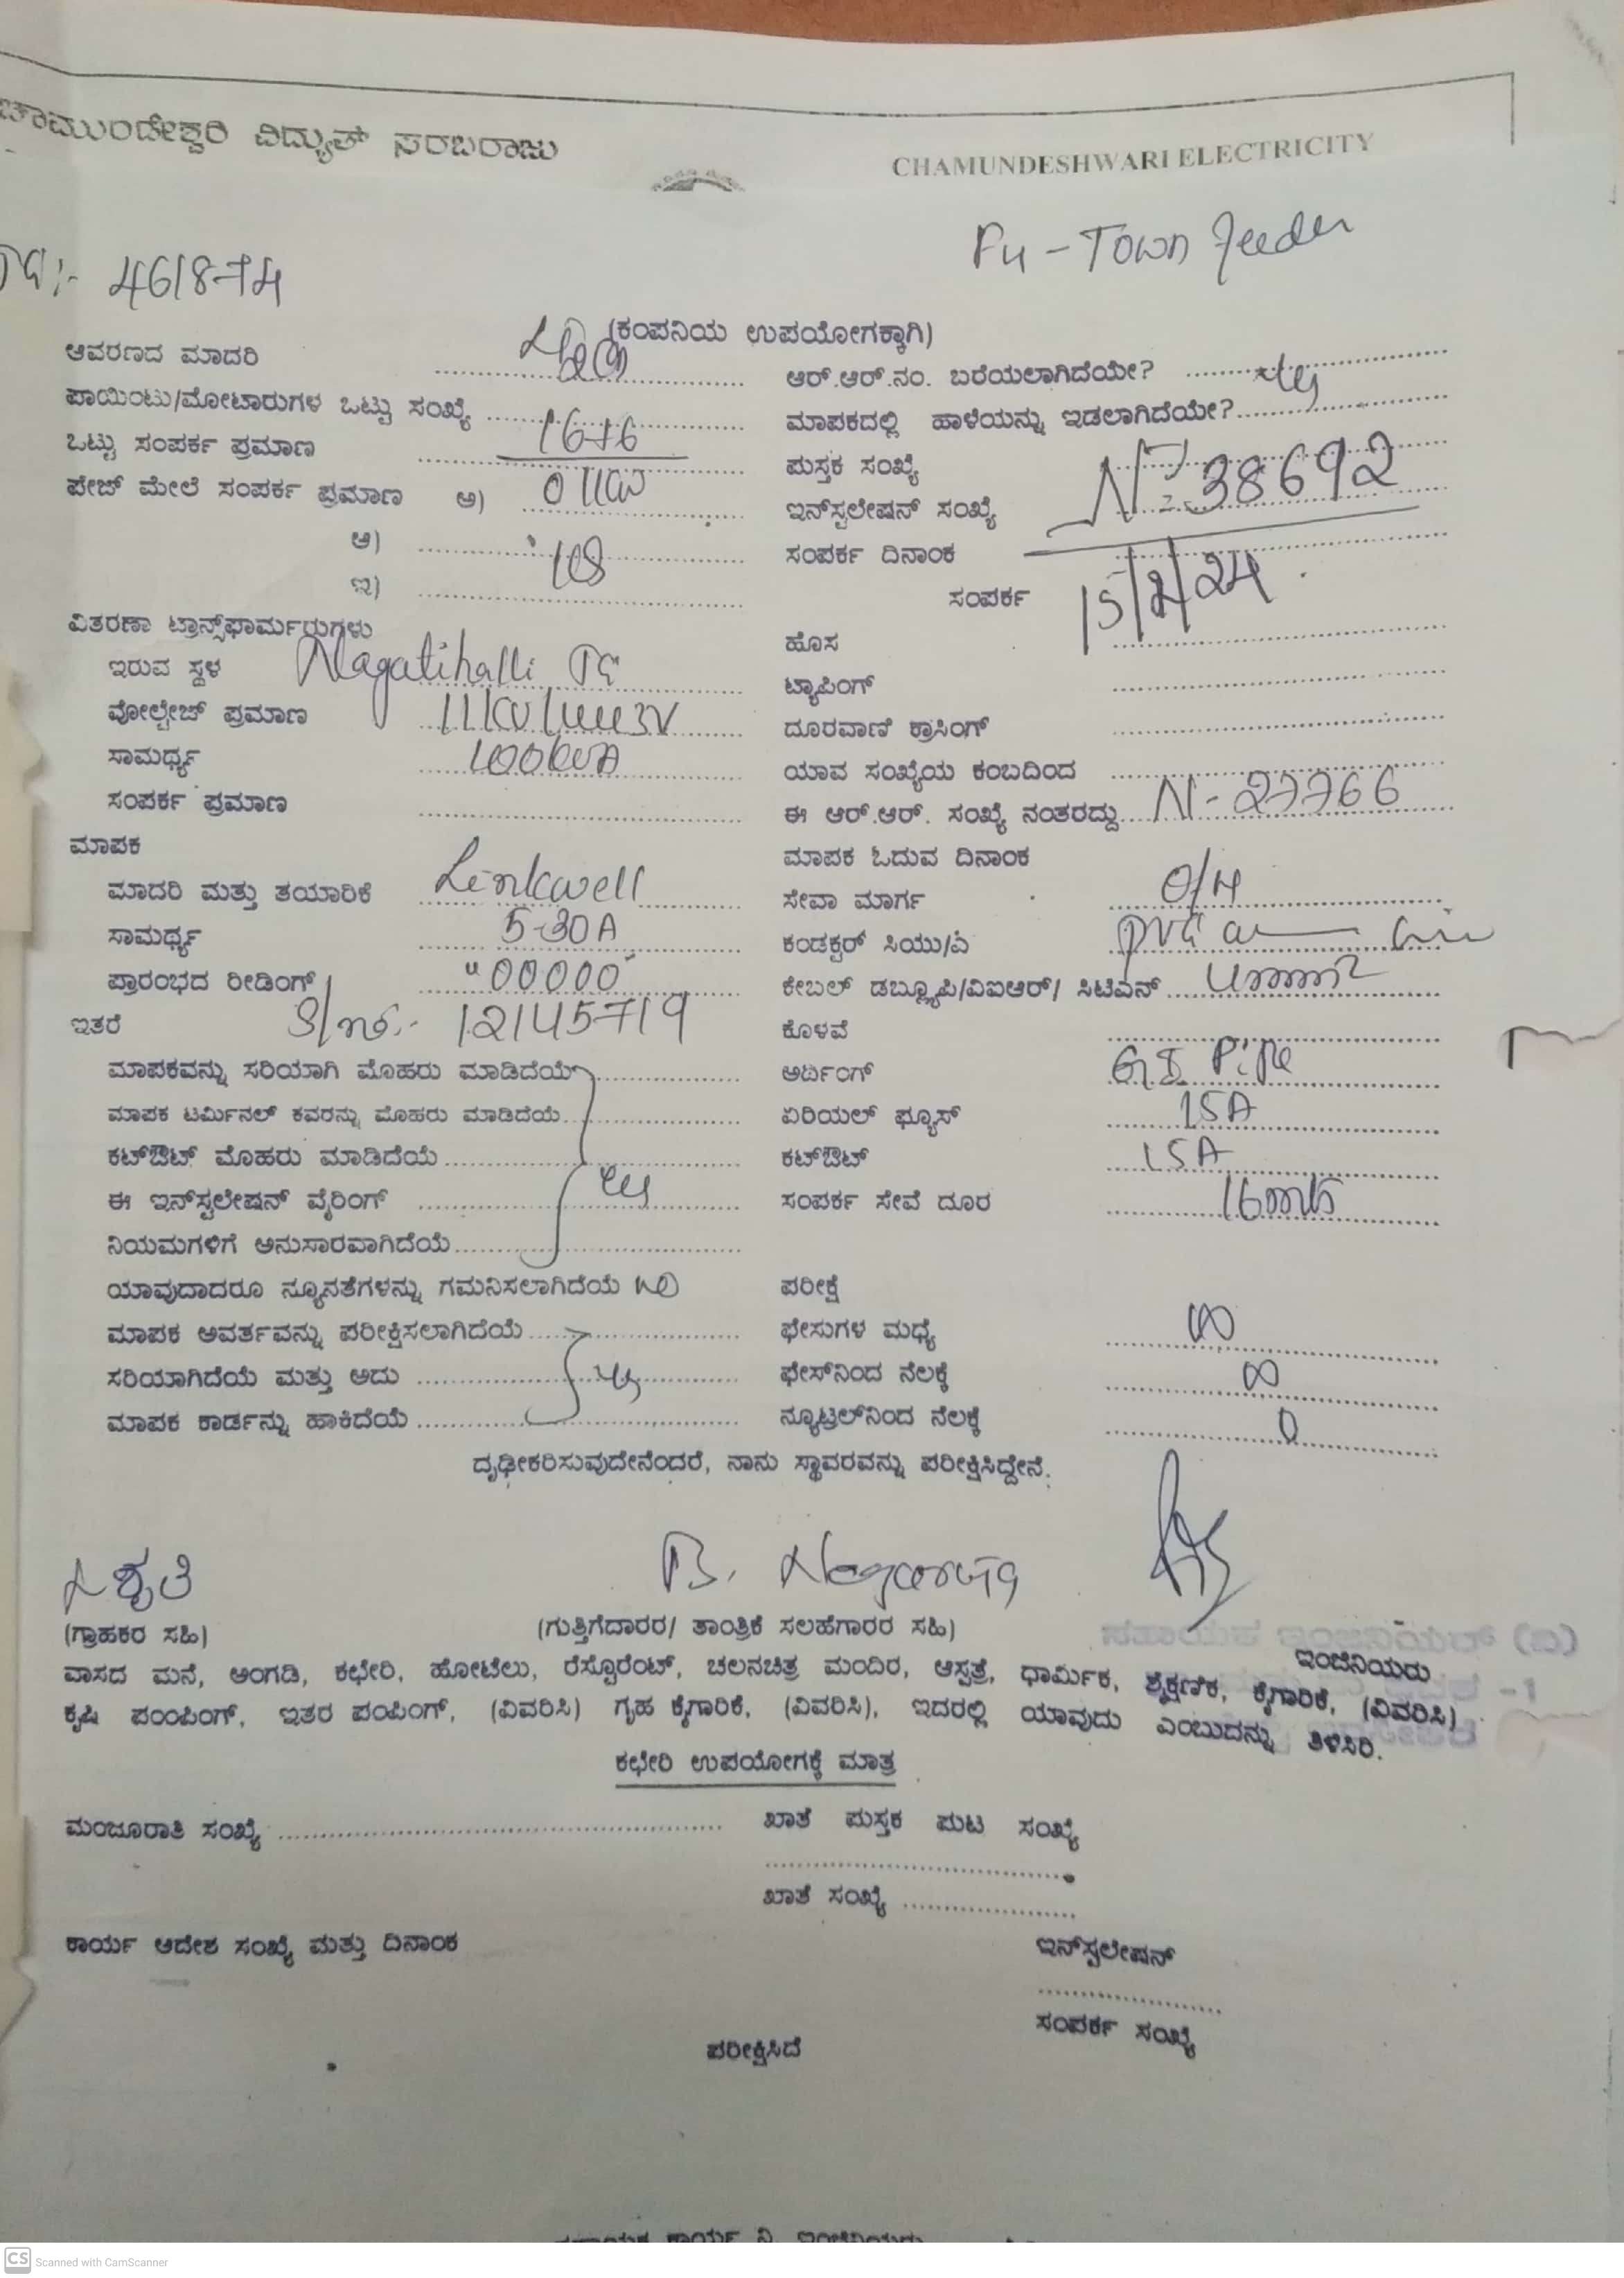 ಚಾಮುಂಡೇಶ್ವರಿ ವಿದ್ಯುತ್ ಸರಬರಾಜು
CHAMUNDESHWARI ELECTRICITY
F4 - Town feeder
TC :- 461874
(ಕಂಪನಿಯ ಉಪಯೋಗಕ್ಕಾಗಿ)
ಆವರಣದ ಮಾದರಿ
ಆರ್.ಆರ್.ನಂ. ಬರೆಯಲಾಗಿದೆಯೇ?
ಪಾಯಿಂಟು/ಮೋಟಾರುಗಳ ಒಟ್ಟು ಸಂಖ್ಯೆ 16+6
ಮಾಪಕದಲ್ಲಿ ಹಾಳೆಯನ್ನು ಇಡಲಾಗಿದೆಯೇ?
ಒಟ್ಟು ಸಂಪರ್ಕ ಪ್ರಮಾಣ
ಪುಸ್ತಕ ಸಂಖ್ಯೆ
ಪೇಜ್ ಮೇಲೆ ಸಂಪರ್ಕ ಪ್ರಮಾಣ ಅ)
ಇನ್‌ಸ್ಟಲೇಷನ್ ಸಂಖ್ಯೆ No 38692
ಆ)
ಸಂಪರ್ಕ ದಿನಾಂಕ 15/2/24
ಇ)
ಸಂಪರ್ಕ
ವಿತರಣಾ ಟ್ರಾನ್ಸ್‌ಫಾರ್ಮರುಗಳು
ಹೊಸ
ಇರುವ ಸ್ಥಳ Nagatihalli TC
ಟ್ಯಾಪಿಂಗ್
ವೋಲ್ಟೇಜ್ ಪ್ರಮಾಣ
ದೂರವಾಣಿ ಕ್ರಾಸಿಂಗ್
ಸಾಮರ್ಥ್ಯ 100kVA
ಯಾವ ಸಂಖ್ಯೆಯ ಕಂಬದಿಂದ
ಸಂಪರ್ಕ ಪ್ರಮಾಣ
ಈ ಆರ್.ಆರ್. ಸಂಖ್ಯೆ ನಂತರದ್ದು N-27766
ಮಾಪಕ
ಮಾಪಕ ಓದುವ ದಿನಾಂಕ
ಮಾದರಿ ಮತ್ತು ತಯಾರಿಕೆ Linkwell
ಸೇವಾ ಮಾರ್ಗ O/H
ಸಾಮರ್ಥ್ಯ 5-30A
ಕಂಡಕ್ಟರ್ ಸಿಯು/ಎ PVC
ಪ್ರಾರಂಭದ ರೀಡಿಂಗ್ "00000"
ಕೇಬಲ್ ಡಬ್ಲ್ಯೂಪಿ/ವಿಐಆರ್/ ಸಿಟಿಎನ್ 4mm2
ಇತರೆ S/no:- 12145719
ಕೊಳವೆ
ಮಾಪಕವನ್ನು ಸರಿಯಾಗಿ ಮೊಹರು ಮಾಡಿದೆಯೆ
ಅರ್ದಿಂಗ್ GI Pipe
ಮಾಪಕ ಟರ್ಮಿನಲ್ ಕವರನ್ನು ಮೊಹರು ಮಾಡಿದೆಯೆ
ಏರಿಯಲ್ ಫ್ಯೂಸ್ 15A
ಕಟ್‌ಔಟ್ ಮೊಹರು ಮಾಡಿದೆಯೆ
ಕಟ್‌ಔಟ್ 15A
ಈ ಇನ್‌ಸ್ಟಲೇಷನ್ ವೈರಿಂಗ್
ಸಂಪರ್ಕ ಸೇವೆ ದೂರ 16mts
ನಿಯಮಗಳಿಗೆ ಅನುಸಾರವಾಗಿದೆಯೆ
ಯಾವುದಾದರೂ ನ್ಯೂನತೆಗಳನ್ನು ಗಮನಿಸಲಾಗಿದೆಯೆ NO
ಪರೀಕ್ಷೆ
ಮಾಪಕ ಅವರ್ತವನ್ನು ಪರೀಕ್ಷಿಸಲಾಗಿದೆಯೆ
ಫೇಸುಗಳ ಮಧ್ಯೆ ∞
ಸರಿಯಾಗಿದೆಯೆ ಮತ್ತು ಅದು
ಫೇಸ್‌ನಿಂದ ನೆಲಕ್ಕೆ ∞
ಮಾಪಕ ಕಾರ್ಡನ್ನು ಹಾಕಿದೆಯೆ
ನ್ಯೂಟ್ರಲ್‌ನಿಂದ ನೆಲಕ್ಕೆ 0
ದೃಢೀಕರಿಸುವುದೇನೆಂದರೆ, ನಾನು ಸ್ಥಾವರವನ್ನು ಪರೀಕ್ಷಿಸಿದ್ದೇನೆ.
(ಗ್ರಾಹಕರ ಸಹಿ)
(ಗುತ್ತಿಗೆದಾರರ/ ತಾಂತ್ರಿಕ ಸಲಹೆಗಾರರ ಸಹಿ)
ಸಹಾಯಕ ಇಂಜಿನಿಯರ್ (ವಿ)
ಇಂಜಿನಿಯರು
ವಾಸದ ಮನೆ, ಅಂಗಡಿ, ಕಛೇರಿ, ಹೋಟೆಲು, ರೆಸ್ಟೊರೆಂಟ್, ಚಲನಚಿತ್ರ ಮಂದಿರ, ಆಸ್ಪತ್ರೆ, ಧಾರ್ಮಿಕ, ಶೈಕ್ಷಣಿಕ, ಕೈಗಾರಿಕೆ, (ವಿವರಿಸಿ)
ಕೃಷಿ ಪಂಪಿಂಗ್, ಇತರ ಪಂಪಿಂಗ್, (ವಿವರಿಸಿ) ಗೃಹ ಕೈಗಾರಿಕೆ, (ವಿವರಿಸಿ), ಇದರಲ್ಲಿ ಯಾವುದು ಎಂಬುದನ್ನು ತಿಳಿಸಿರಿ.
ಕಛೇರಿ ಉಪಯೋಗಕ್ಕೆ ಮಾತ್ರ
ಮಂಜೂರಾತಿ ಸಂಖ್ಯೆ
ಖಾತೆ ಪುಸ್ತಕ ಪುಟ ಸಂಖ್ಯೆ
ಖಾತೆ ಸಂಖ್ಯೆ
ಕಾರ್ಯ ಆದೇಶ ಸಂಖ್ಯೆ ಮತ್ತು ದಿನಾಂಕ
ಇನ್‌ಸ್ಟಲೇಷನ್
ಸಂಪರ್ಕ ಸಂಖ್ಯೆ
ಪರೀಕ್ಷಿಸಿದೆ
CS Scanned with CamScanner